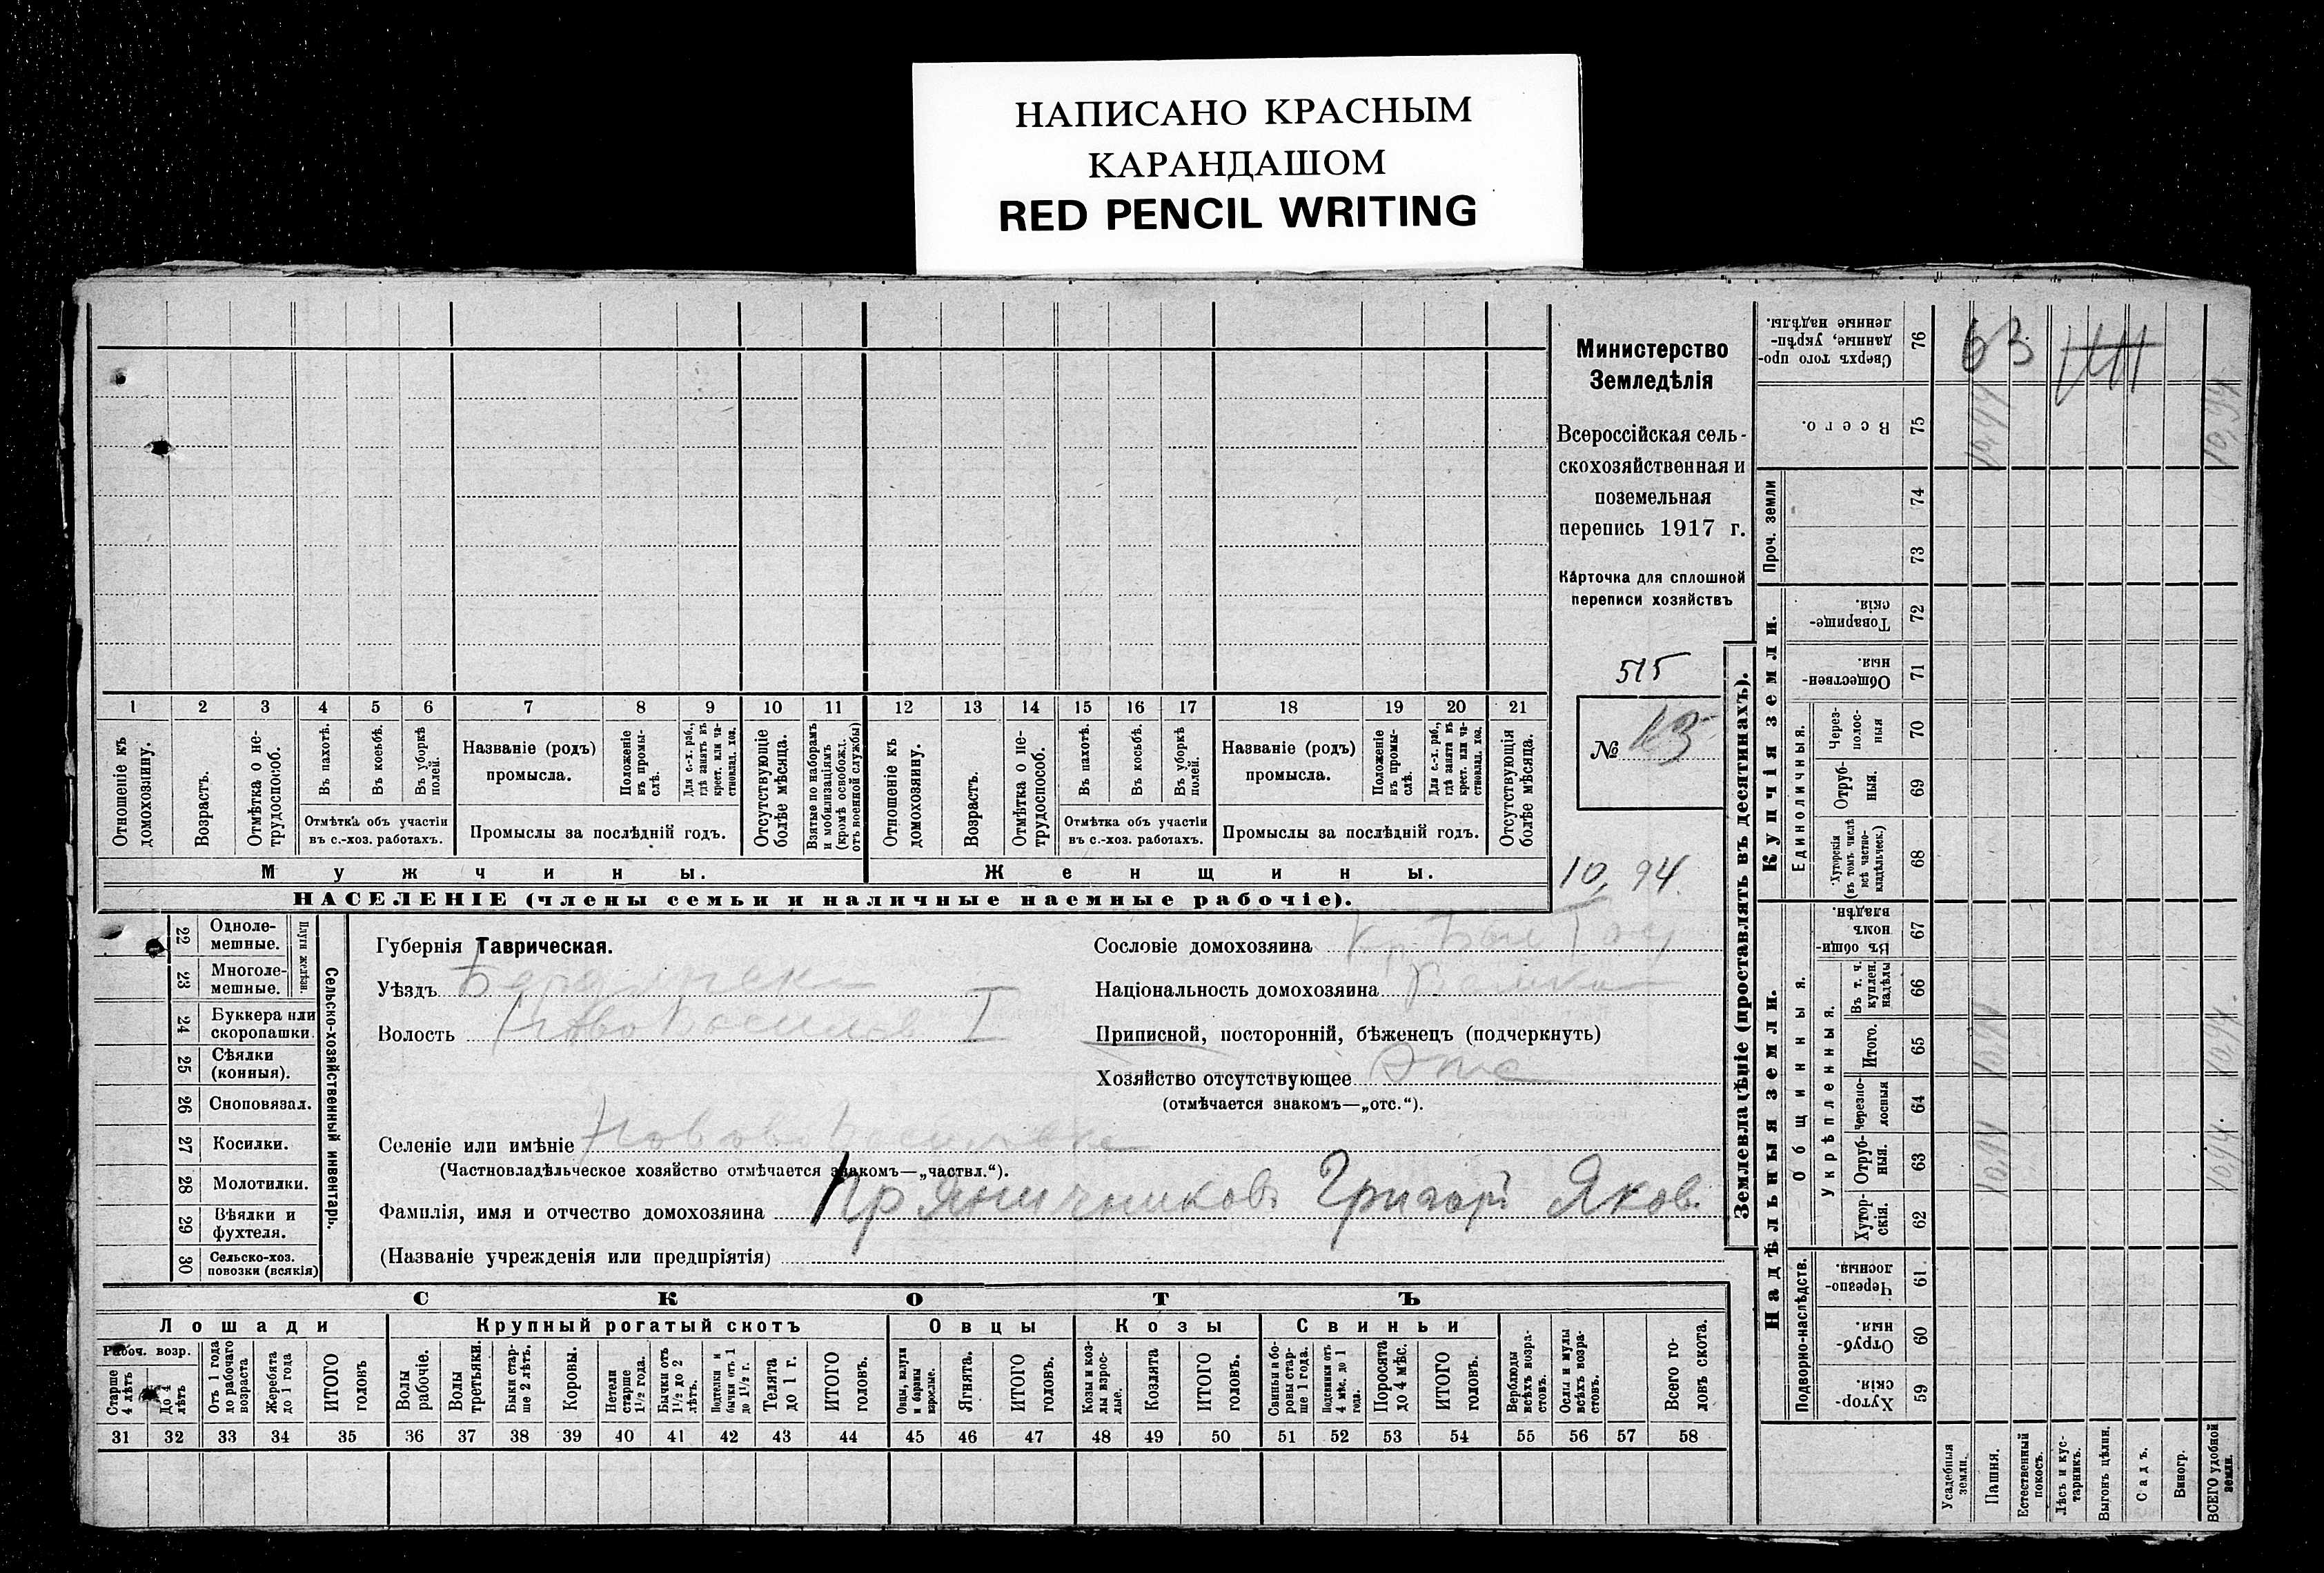 НАПИСАНО КРАСНЫМ
КАРАНДАШОМ
RED PENCIL WRITING
Министерство
Земледѣлія
Всероссійская сель-
скохозяйственная и
поземельная
перепись 1917 г.
Карточка для сплошной
переписи хозяйствъ
515
№ 13
10,94.
1 2 3 4 5 6 7 8 9 10 11 12 13 14 15 16 17 18 19 20 21
Отношеніе къ домохозяину.
Возрастъ.
Отмѣтка о не-трудоспособ.
Въ пахотѣ.
Въ косьбѣ.
Въ уборкѣ полей.
Отмѣтка объ участіи
въ с.-хоз. работахъ.
Названіе (родъ)
промысла.
Положеніе въ промы-слѣ.
Для с.-х. раб., гдѣ занятъ въ крест. или ча-стновлад. хоз.
Промыслы за послѣдній годъ.
Отсутствующіе болѣе мѣсяца.
Взятые по наборамъ и мобилизаціямъ (кромѣ освобожд. отъ военной службы)
Отношеніе къ домохозяину.
Возрастъ.
Отмѣтка о не-трудоспособ.
Въ пахотѣ.
Въ косьбѣ.
Въ уборкѣ полей.
Отмѣтка объ участіи
въ с.-хоз. работахъ.
Названіе (родъ)
промысла.
Положеніе въ промы-слѣ.
Для с.-х. раб., гдѣ занята въ крест. или ча-стновлад. хоз.
Промыслы за послѣдній годъ.
Отсутствующія болѣе мѣсяца.
Мужчины. Женщины.
НАСЕЛЕНІЕ (члены семьи и наличные наемные рабочіе).
Сельско-хозяйственный инвентарь.
Плуги желѣзн.
22 Однолемешные.
23 Многолемешные.
24 Буккера или скоропашки.
25 Сѣялки (конныя).
26 Сноповязал.
27 Косилки.
28 Молотилки.
29 Вѣялки и фухтеля.
30 Сельско-хоз. повозки (всякія)
Губернія Таврическая.
Уѣздъ Бердянск
Волость I
Селеніе или имѣніе
(Частновладѣльческое хозяйство отмѣчается знакомъ—„частвл.“).
Фамилія, имя и отчество домохозяина Пряничниковъ Григорій Яков.
(Названіе учрежденія или предпріятія)
Сословіе домохозяина
Національность домохозяина
Приписной, посторонній, бѣженецъ (подчеркнуть)
Хозяйство отсутствующее Отс
(отмѣчается знакомъ—„отс.“).
СКОТЪ
Лошади Крупный рогатый скотъ Овцы Козы Свиньи
Рабоч. возр.
Старше 4 лѣтъ
До 4 лѣтъ
Отъ 1 года до рабочаго возраста
Жеребята до 1 года
ИТОГО головъ
Волы рабочіе.
Волы третьяки.
Быки стар-ше 2 лѣтъ.
Коровы.
Нетели старше 1½ года.
Бычки отъ 1½ до 2 лѣтъ.
Подтелки и бычки отъ 1 до 1½ г.
Телята до 1 г.
ИТОГО головъ.
Овцы, валухи и бараны взрослые.
Ягнята.
ИТОГО головъ.
Козы и коз-лы взрос-лые.
Козлята
ИТОГО головъ.
Свиньи и бо-ровы стар-ше 1 года.
Подсвинки отъ 4 мѣс. до 1 года.
Поросята до 4 мѣс.
ИТОГО головъ.
Верблюды всѣхъ возра-стовъ.
Ослы и мулы всѣхъ возра-стовъ.
Всего го-ловъ скота.
31 32 33 34 35 36 37 38 39 40 41 42 43 44 45 46 47 48 49 50 51 52 53 54 55 56 57 58
Землевладѣніе (проставлять въ десятинахъ).
Купчія земли.
Надѣльныя земли.
Сверхъ того про-данные, укрѣп-ленные надѣлы. 76
Всего. 75
Проч. земли
74
73
Товарище-скія. 72
Обществен-ныя. 71
Единоличныя.
Через-полос-ныя 70
Отруб-ныя. 69
Хуторскія (въ томъ числѣ всѣ частно-владѣльческ.) 68
Общинныя.
Въ общи-номъ владѣн. 67
Укрѣпленныя.
Въ т. ч. куплен. надѣлы 66
Итого. 65
Черезпо-лосныя 64
Отруб-ныя. 63
Хутор-скія. 62
Подворно-наслѣдств.
Черезпо-лосныя. 61
Отруб-ныя. 60
Хутор-скія 59
Усадебныя земли.
Пашня.
Естественный покосъ.
Лѣсъ и кус-тарникъ.
Выгонъ цѣлин.
Садъ.
Виногр.
ВСЕГО удобной земли.
63
10,94
10,94
10,94
10,94
10,94
10,94